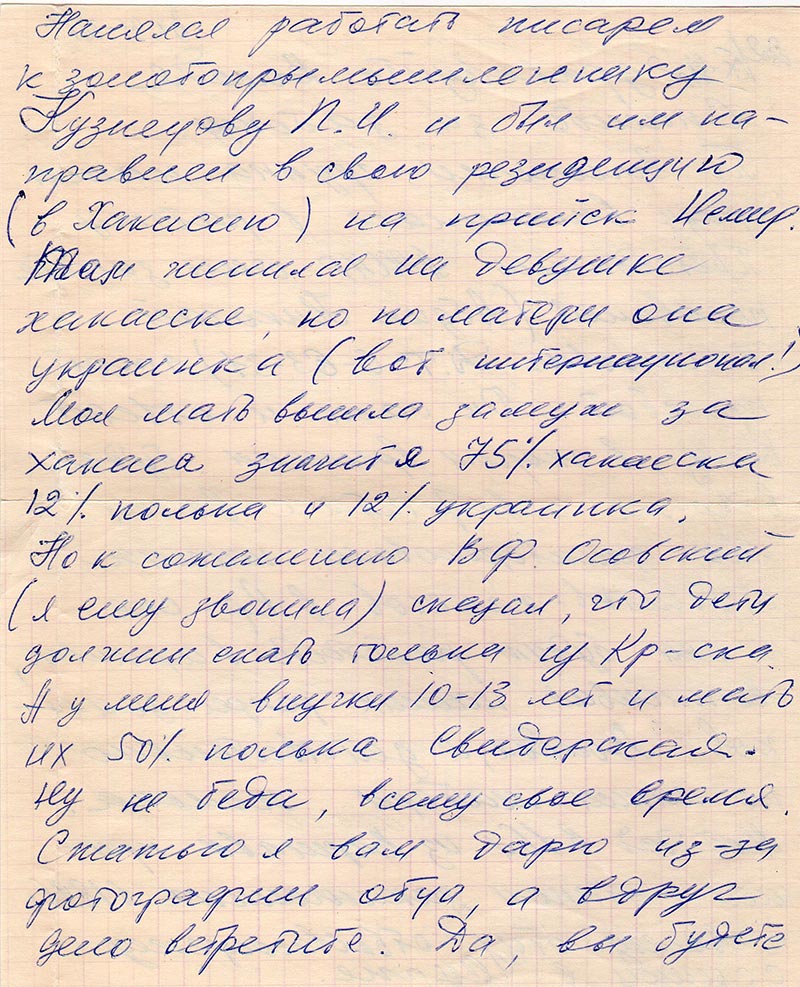 Нанялся работать писарем
к золотопрмышленнику
Кузнецову П.И. и был им на-
правлен в свою резиденцую
(в Хакасию) на прииск Немир.
Там женился на девушке
хакасске, но по матери она
украинка (вот интернационал!)
Моя мать вышла замуж за
хакаса значит я 75% хакасска
12% полька и 12% украинка.
Но к сожалению В.Ф. Осовский
(я ему звонила) сказал, что дети
должны ехать только из Кр-ска
А у меня внучки 10-13 лет и мать
их 50% полька Свидерская.
Ну не беда, всему свое время.
Статью я вам дарю из-за
фотографии отца, а вдруг
дело встретите. Да, вы будете